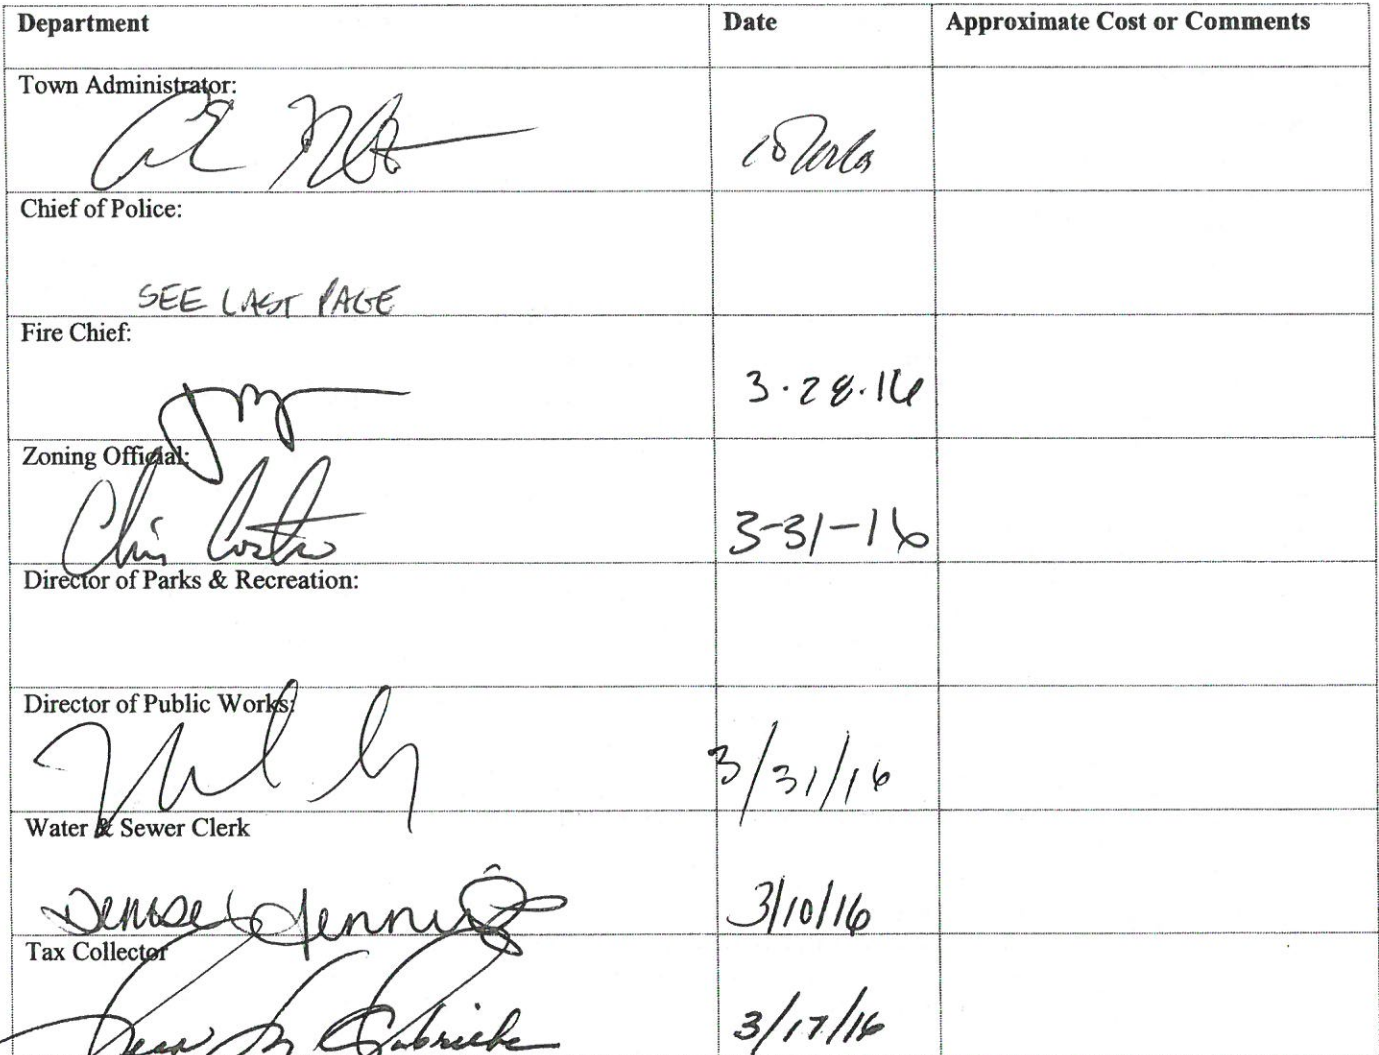 Department Date Approximate Cost or Comments
Town Administrator:
Chief of Police:
SEE LAST PAGE
Fire Chief:
3.28.16
Zoning Official:
Chris Costro 3-31-16
Director of Parks & Recreation:
Director of Public Works:
3/31/16
Water & Sewer Clerk
Denise Jennings 3/10/16
Tax Collector
3/17/16